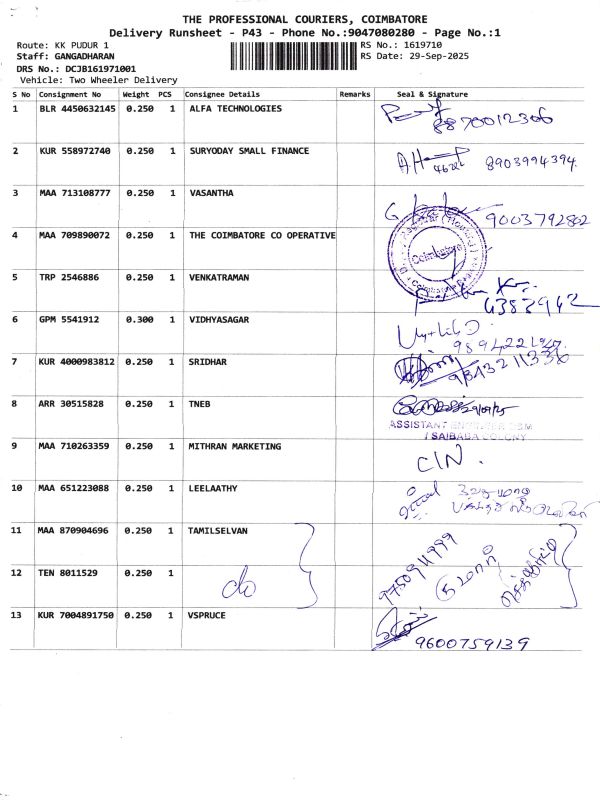 THE PROFESSIONAL COURIERS, COIMBATORE
Delivery Runsheet - P43 - Phone No.:9047080280 - Page No.:1
Route: KK PUDUR 1 RS No.: 1619710
Staff: GANGADHARAN RS Date: 29-Sep-2025
DRS No.: DCJB161971001
Vehicle: Two Wheeler Delivery
S No Consignment No Weight PCS Consignee Details Remarks Seal & Signature
1 BLR 4450632145 0.250 1 ALFA TECHNOLOGIES 8870012306
2 KUR 558972740 0.250 1 SURYODAY SMALL FINANCE 8903994394.
3 MAA 713108777 0.250 1 VASANTHA 9003792802
4 MAA 709890072 0.250 1 THE COIMBATORE CO OPERATIVE Coimbatore
5 TRP 2546886 0.250 1 VENKATRAMAN
6 GPM 5541912 0.300 1 VIDHYASAGAR
7 KUR 4000983812 0.250 1 SRIDHAR
8 ARR 30515828 0.250 1 TNEB
ASSISTANT ENGINEER
/ SAIBABA COLONY
9 MAA 710263359 0.250 1 MITHRAN MARKETING C/N.
10 MAA 651223088 0.250 1 LEELAATHY
11 MAA 870904696 0.250 1 TAMILSELVAN
12 TEN 8011529 0.250 1
13 KUR 7004891750 0.250 1 VSPRUCE 9600759139